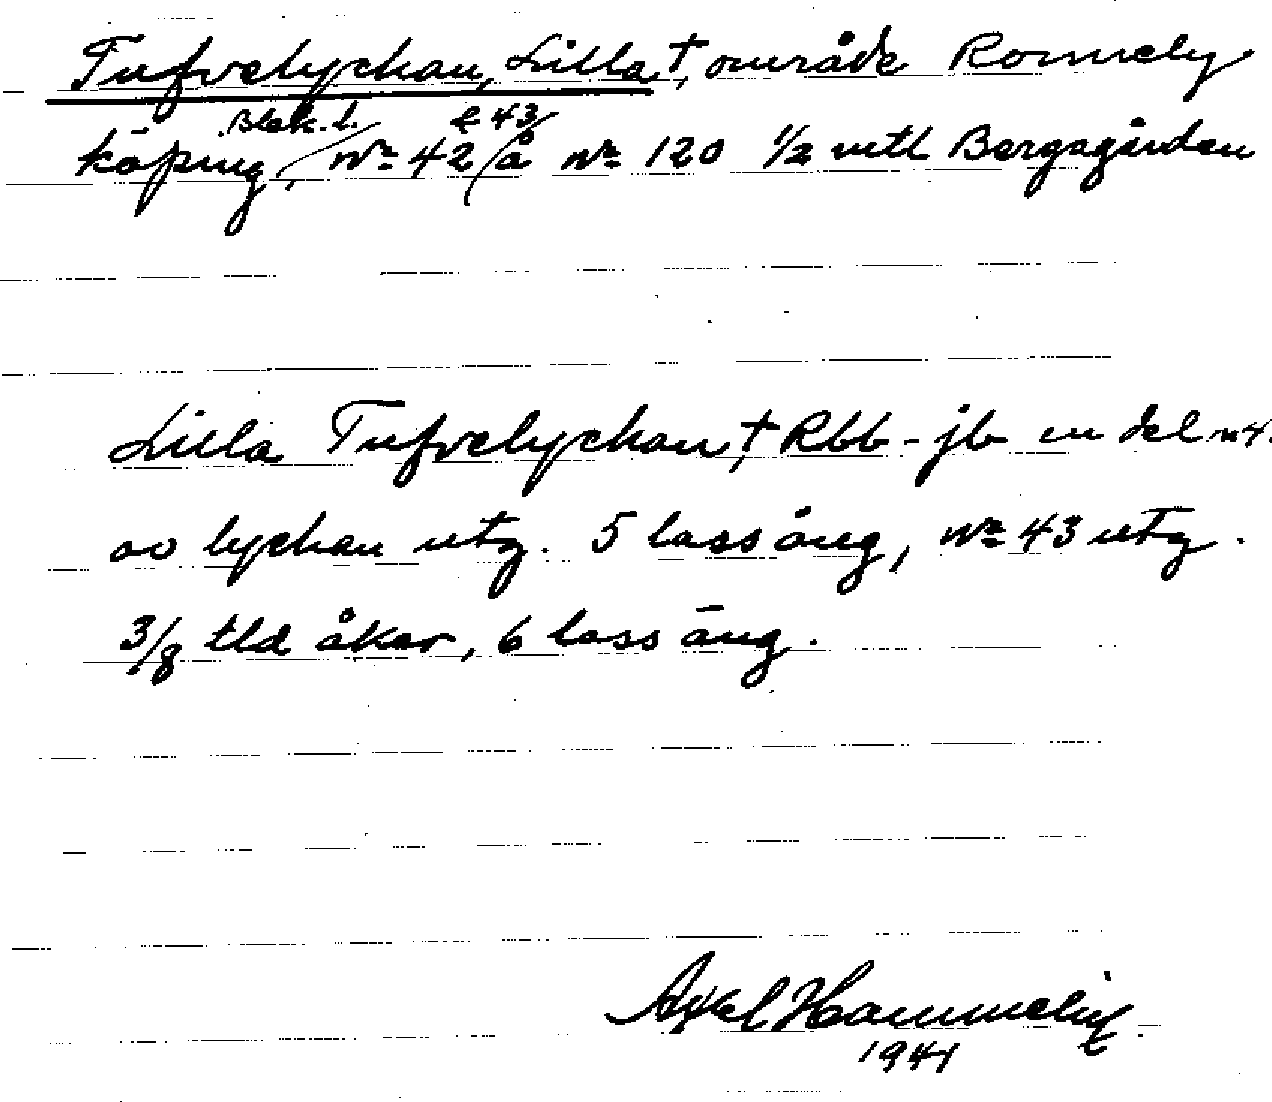 Tufvelyckan, Lilla †, område Ronneby
köping, Blek. l. Nr 42 & 43 / å Nr 120 1/2 mtl Bergagården
Lilla Tufvelyckan †, Rbb - jb en del
av lyckan utg. 5 lass äng, Nr 43 utg.
3/8 tld åker, 6 lass äng.
Axel Hammelin
1941